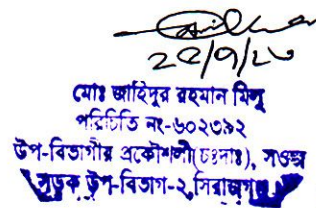 মোঃ জাহিদুর রহমান মিলু
পরিচিতি নং-৬০২৩৯২
উপ-বিভাগীয় প্রকৌশলী(চঃদাঃ), সওজ
সড়ক উপ-বিভাগ-২,সিরাজগঞ্জ